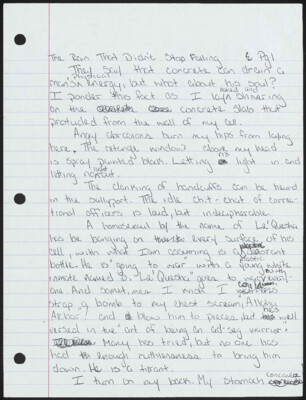 The Rain That Didn't Stop Falling & Pg 1
They say that concrete can drain a
man's physical energy, but what about his soul?
I ponder this fact as I lay shivering
on the concrete slab that
protruded from the wall of my cell.
Angry abrasions burn my hips from laying
here. The rectangle window above my head
is spray painted black. Letting no light in and
letting no out.
The clanking of handcuffs can be heard
in the sallyport. The idle chit-chat of correc-
tional officers is loud, but indecipherable.
A homosexual by the name of La'Quesha
has be banging on every surface of his
cell, with what I am assuming is a deodorant
bottle. He is "going to war" with a young white
inmate named
one. And sometimes I wish I
strap a bomb to my chest scream, Allahu
Akbar! and blow him to pieces, but he's well
versed in the "art of being an ad-seg warrior."
Many has tried, but no one has
had enough ruthlessness to bring him
down. He is a tyrant.
I turn on my back. My stomach